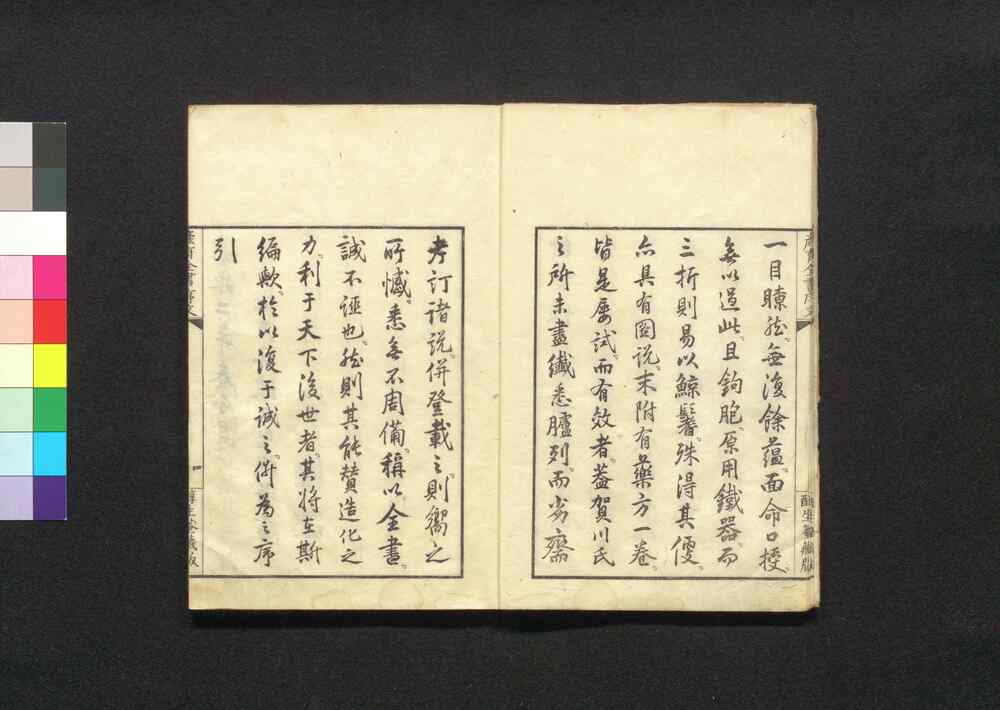 一目瞭然。無復餘蘊。面命口授。
無以過此。且鉤胞。原用鐵器。而
三折則易以鯨鬚。殊得其便。
亦具有圖說。末附有藥方一卷。
皆是屢試。而有效者。蓋賀川氏
之所未盡。纖悉臚列。而劣齋
考訂諸說。併登載之。則嚮之
所憾。悉無不周備。稱以全書。
誠不誣也。然則其能贊造化之
力。利于天下後世者。其將在斯
編歟。於以復于誠之。併為之序
引